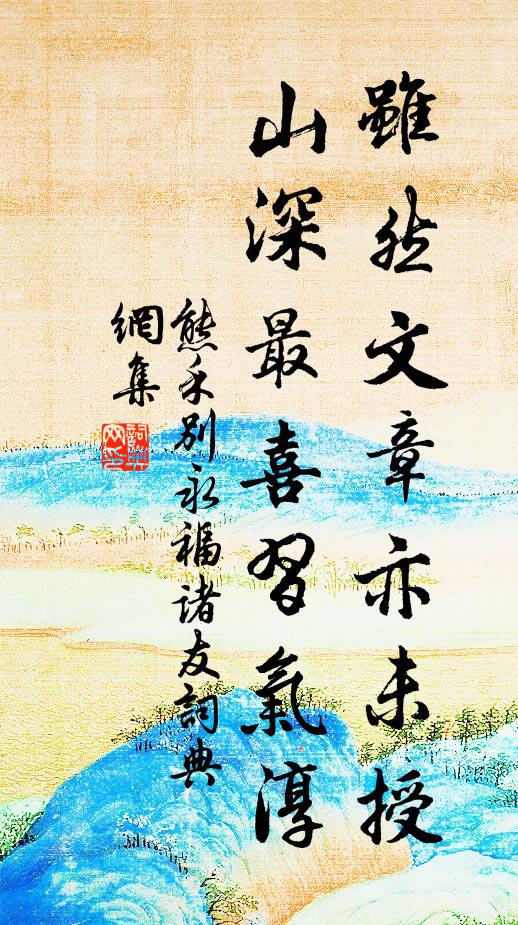 雖然文章亦未授
山深最喜習氣淳
熊禾別永福諸友詞典
網集